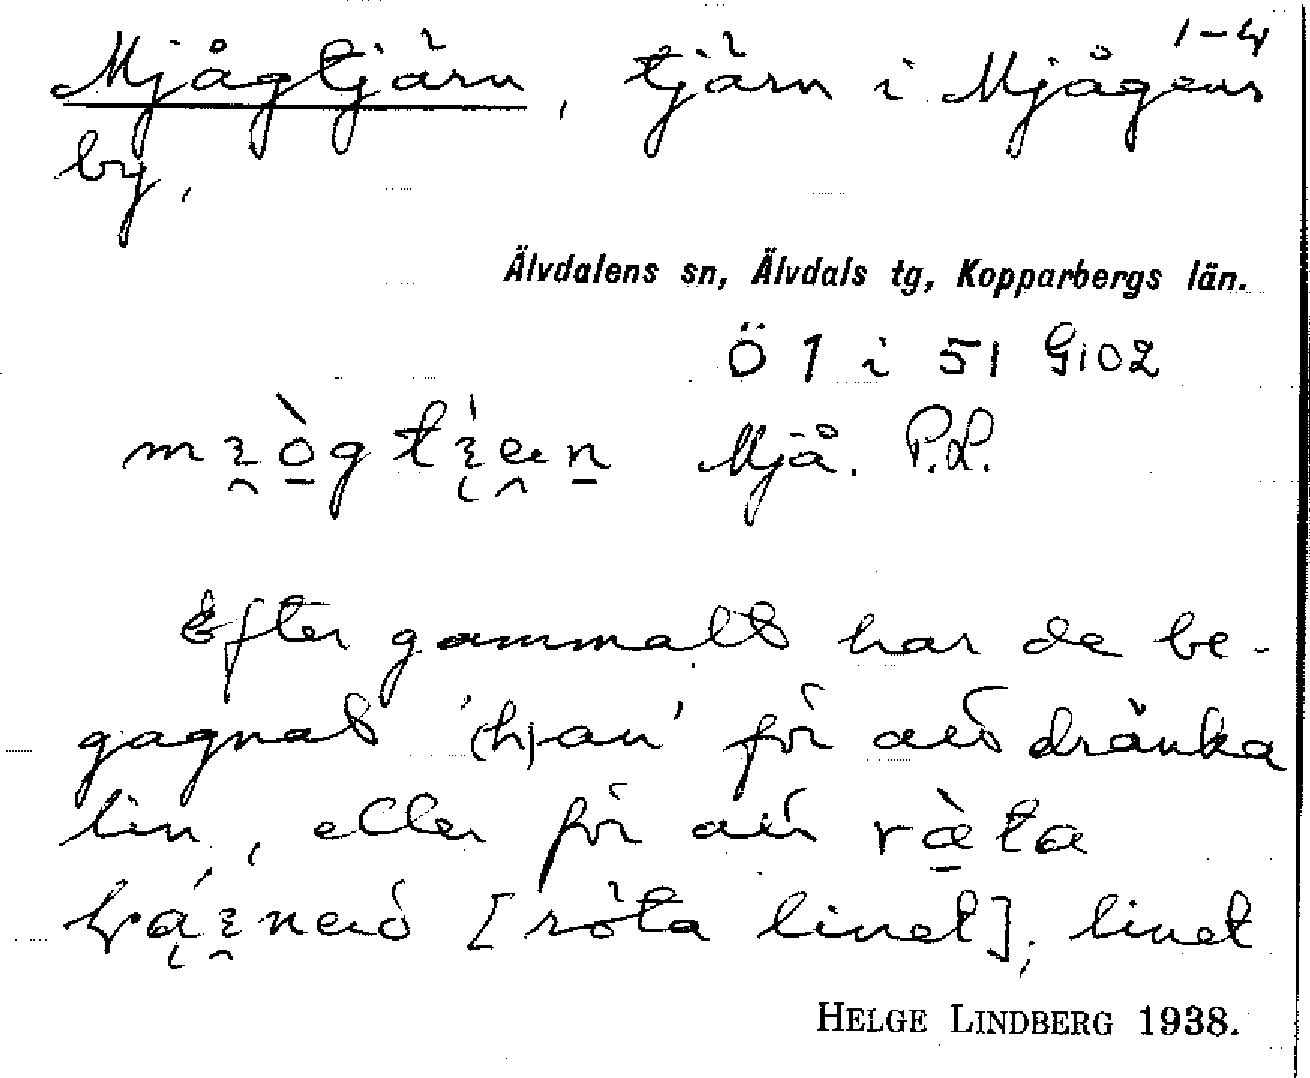 1-4
Mjågtjärn, tjärn i Mjågens
by.
Älvdalens sn, Älvdals tg, Kopparbergs län.
Ö 1 i 51 G102
Mjå. P.L.
Efter gammalt har de be-
gagnat '(h)an' för att dränka
lin, eller för att ræta
[röta linet]; linet
HELGE LINDBERG 1938.